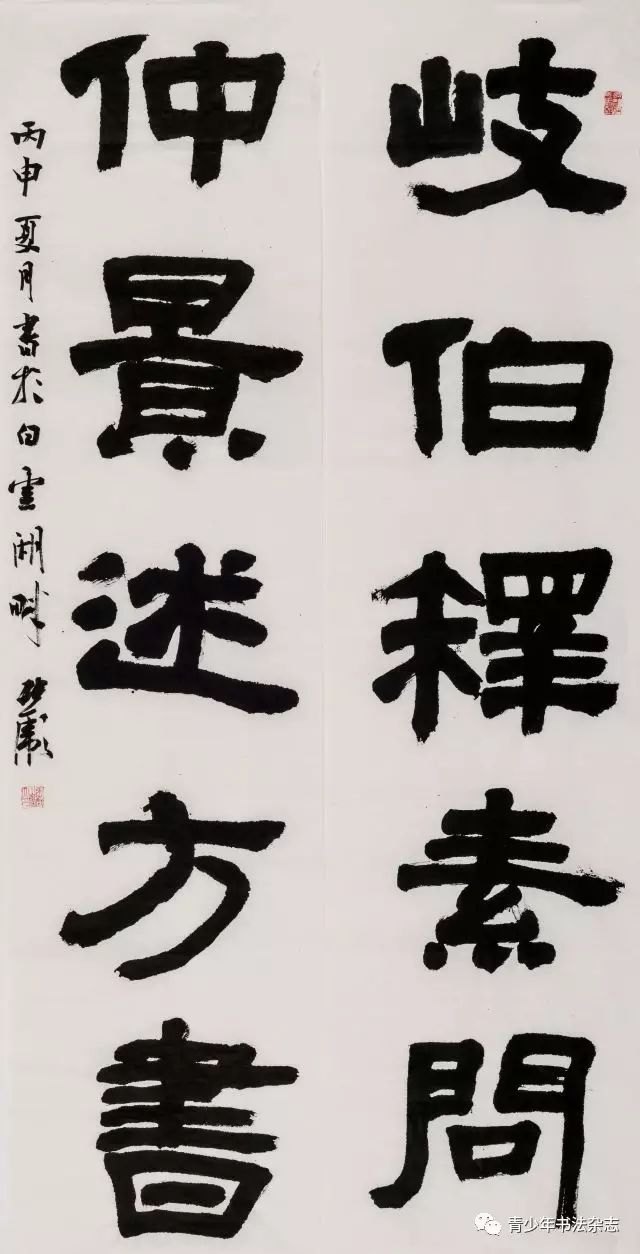 岐伯釋素問
仲景述方書
丙申夏月書於白雲湖畔
青少年书法杂志